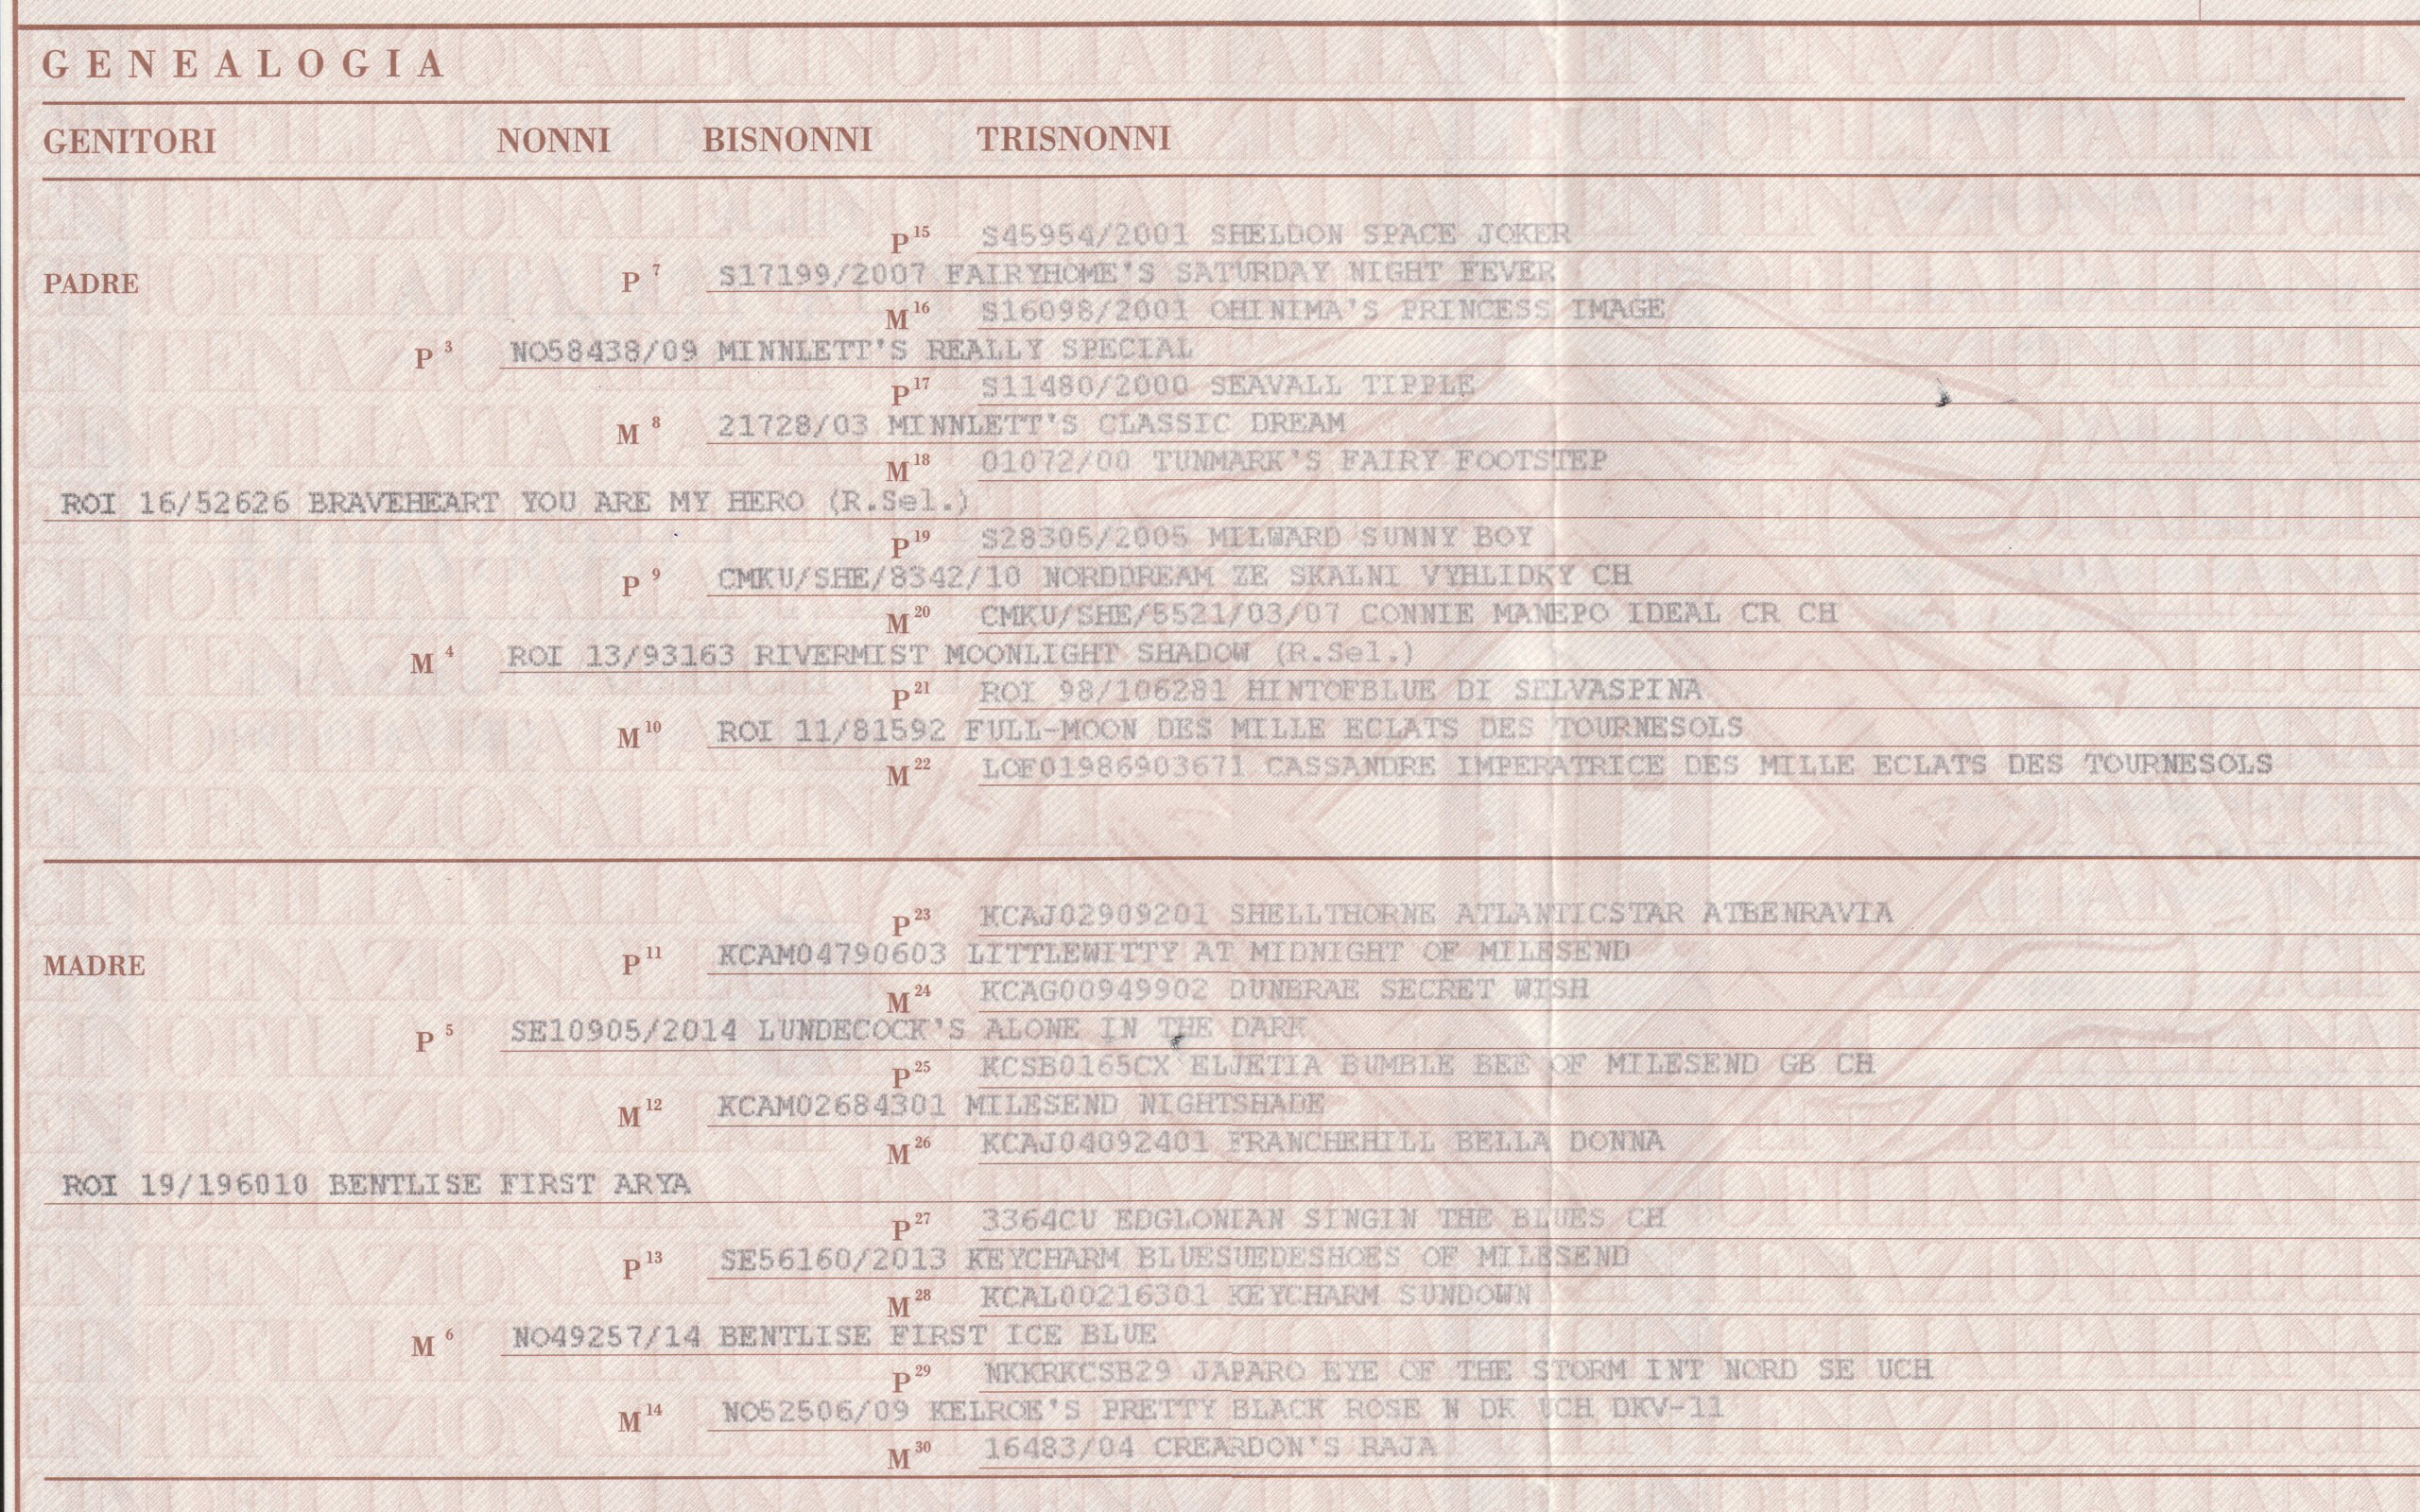 GENEALOGIA
GENITORI NONNI BISNONNI TRISNONNI
P 15 S45954/2001 SHELDON SPACE JOKER
PADRE P 7 S17199/2007 FAIRYHOME'S SATURDAY NIGHT FEVER
M 16 S16098/2001 OHINIMA'S PRINCESS IMAGE
P 3 NO58438/09 MINNLETT'S REALLY SPECIAL
P 17 S11480/2000 SEAVALL TIPPLE
M 8 21728/03 MINNLETT'S CLASSIC DREAM
M 18 01072/00 TUNMARK'S FAIRY FOOTSTEP
ROI 16/52626 BRAVEHEART YOU ARE MY HERO (R.Sel.)
P 19 S28305/2005 MILWARD SUNNY BOY
P 9 CMKU/SHE/8342/10 NORDDREAM ZE SKALNI VYHLIDKY CH
M 20 CMKU/SHE/5521/03/07 CONNIE MANEPO IDEAL CR CH
M 4 ROI 13/93163 RIVERMIST MOONLIGHT SHADOW (R.Sel.)
P 21 ROI 98/106281 HINTOFBLUE DI SELVASPINA
M 10 ROI 11/81592 FULL-MOON DES MILLE ECLATS DES TOURNESOLS
M 22 LOF01986903671 CASSANDRE IMPERATRICE DES MILLE ECLATS DES TOURNESOLS
P 23 KCAJ02909201 SHELLTHORNE ATLANTICSTAR ATBENRAVIA
MADRE P 11 KCAM04790603 LITTLEWITTY AT MIDNIGHT OF MILESEND
M 24 KCAG00949902 DUNBRAE SECRET WISH
P 5 SE10905/2014 LUNDECOCK'S ALONE IN THE DARK
P 25 KCSB0165CX ELJETIA BUMBLE BEE OF MILESEND GB CH
M 12 KCAM02684301 MILESEND NIGHTSHADE
M 26 KCAJ04092401 FRANCHEHILL BELLA DONNA
ROI 19/196010 BENTLISE FIRST ARYA
P 27 3364CU EDGLONIAN SINGIN THE BLUES CH
P 13 SE56160/2013 KEYCHARM BLUESUEDESHOES OF MILESEND
M 28 KCAL00216301 KEYCHARM SUNDOWN
M 6 NO49257/14 BENTLISE FIRST ICE BLUE
P 29 NKKRKCSB29 JAPARO EYE OF THE STORM INT NORD SE UCH
M 14 NO52506/09 KELROE'S PRETTY BLACK ROSE N DK UCH DKV-11
M 30 16483/04 CREARDON'S RAJA